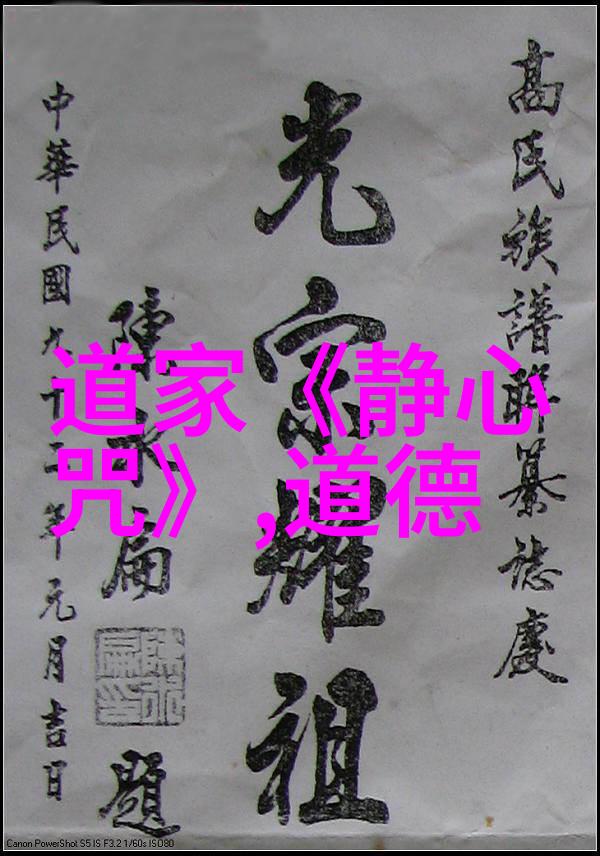 高氏族譜聯纂誌慶
光宗耀祖
陳水扁
陳水扁印
題
中華民國九十二年元月吉日
道家《静心
咒》,道德
Canon PowerShot S5 IS F3.2 1/60s ISO80